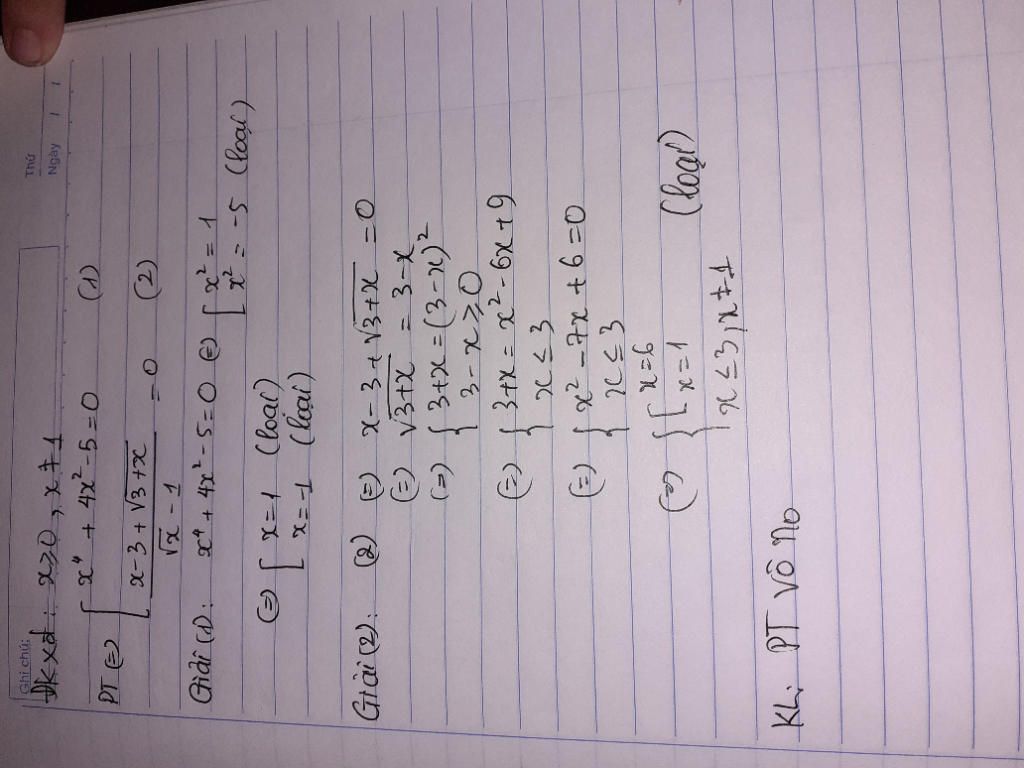 Thứ
Ngày
Ghi chú:
ĐKXĐ: x ≥ 0, x ≠ 1
PT (=) [ x⁴ + 4x² - 5 = 0 (1)
[ (x - 3 + √(3+x)) / (√x - 1) = 0 (2)
Giải (1): x⁴ + 4x² - 5 = 0 (=) [ x² = 1
[ x² = -5 (loại)
(=) [ x = 1 (loại)
[ x = -1 (loại)
Giải (2): (2) (=) x - 3 + √(3+x) = 0
(=) √(3+x) = 3 - x
(=) { 3 + x = (3 - x)²
{ 3 - x ≥ 0
(=) { 3 + x = x² - 6x + 9
{ x ≤ 3
(=) { x² - 7x + 6 = 0
{ x ≤ 3
(=) { [ x = 6
{ [ x = 1 (loại)
{ x ≤ 3, x ≠ 1
KL: PT vô no